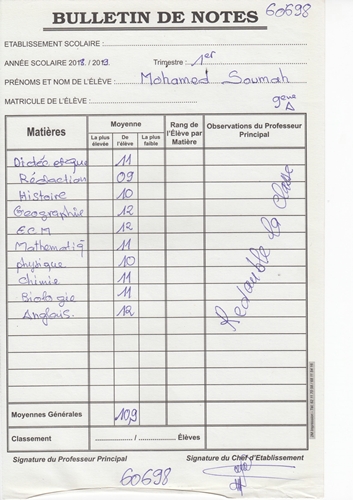 BULLETIN DE NOTES
60698
ETABLISSEMENT SCOLAIRE :
ANNÉE SCOLAIRE 2018 / 2019 Trimestre : 1er
PRÉNOMS ET NOM DE L'ÉLÈVE : Mohamed Soumah
MATRICULE DE L'ÉLÈVE : 9eme A
Matières Moyenne Rang de l'Élève par Matière Observations du Professeur Principal
La plus élevée De l'élève La plus faible
11
Rédaction 09
Histoire 10
Geographie 12
E.C.M 12
Mathematiq 11
physique 10
Chimie 11
Biologie 11
Anglais 12
Redouble la classe
Moyennes Générales 10,9
Classement / Élèves
Signature du Professeur Principal Signature du Chef d'Etablissement
60698